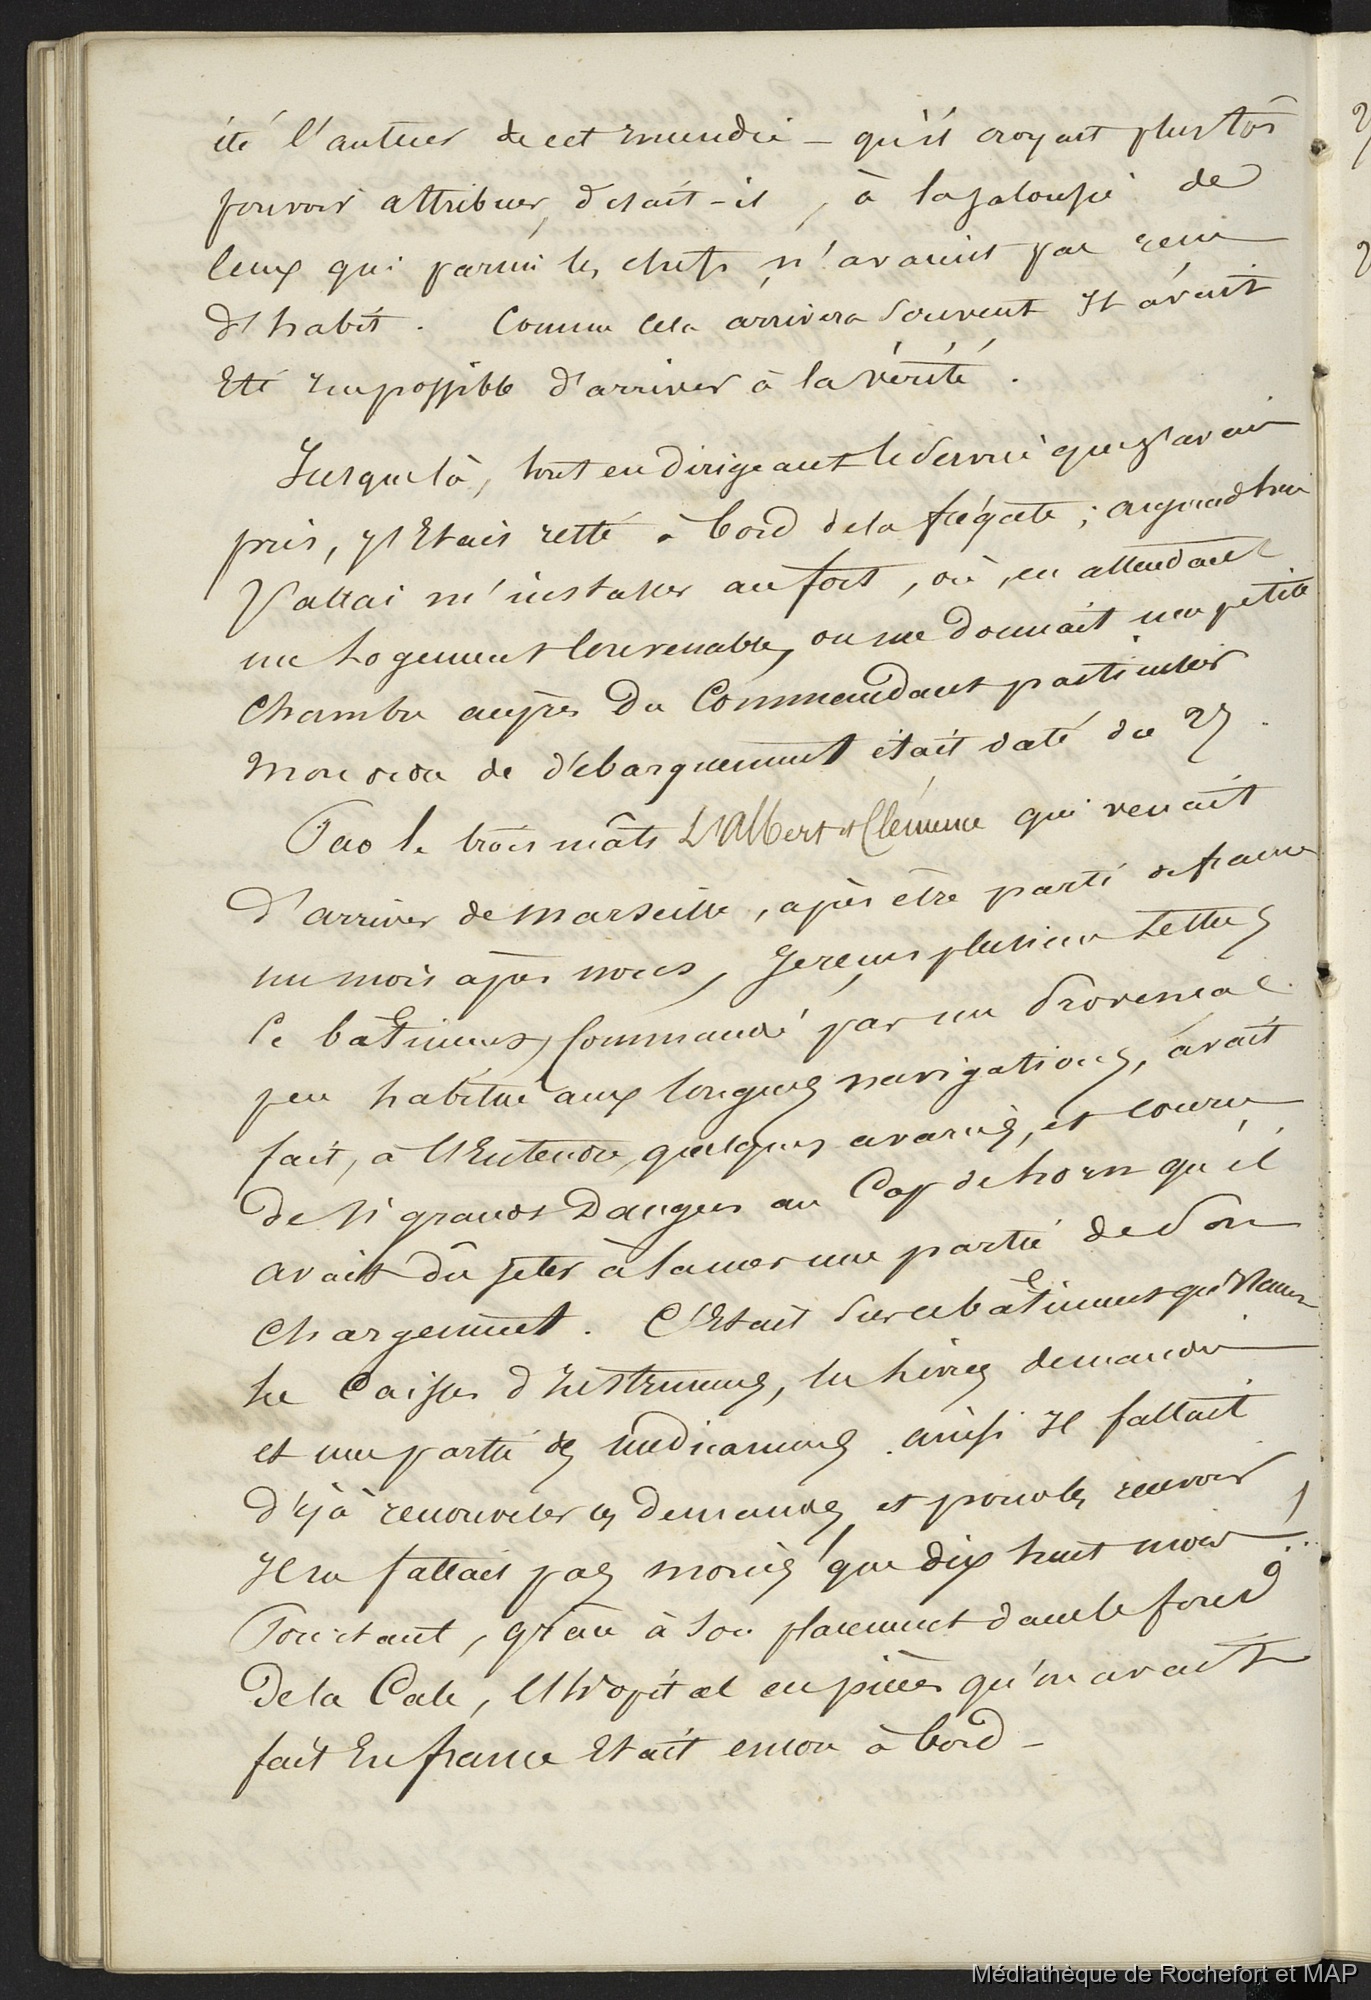 été l'auteur de cet incendie – qu'il croyait plustôt
pouvoir attribuer, disait-il, à la jalousie de
ceux qui parmi les chefs n'avaient pas reçu
d'habit. Comme cela arrivera souvent Il avait
Eté Impossible d'arriver à la vérité.
Jusque là, tout en dirigeant le service que j'avais
pris, j'Etais resté à bord de la frégate; aujourd'hui
J'allai m'installer au fort, où, en attendant
un Logement Convenable, on me donnait une petite
Chambre auprès du Commandant particulier
mon ordre de débarquement était daté du 27.
Par le trois mâts L'Albert et Clémence qui venait
d'arriver de Marseille, après être parti de france
un mois après nous, Je reçus plusieurs Lettres
Ce bâtiment, Commandé par un Provencal
peu habitué aux longues navigations, avait
fait, à l'Entendre, quelques avaries, et couru
de si grands Dangers au Cap de horn qu'il
avait dû jeter à la mer une partie de son
chargement. C'Etait sur ce bâtiment qu'étaient
les Caisses d'Instruments, les livres demandés
et une partie des médicaments. ainsi Il fallait
déjà renouveler ces demandes, et pour les recevoir
Il ne fallait pas moins que dix huit mois !...
Pourtant, grâce à son placement dans le fond
de la Cale, l'hôpital en pièces qu'on avait
fait En france Etait encore à bord –
Médiathèque de Rochefort et MAP